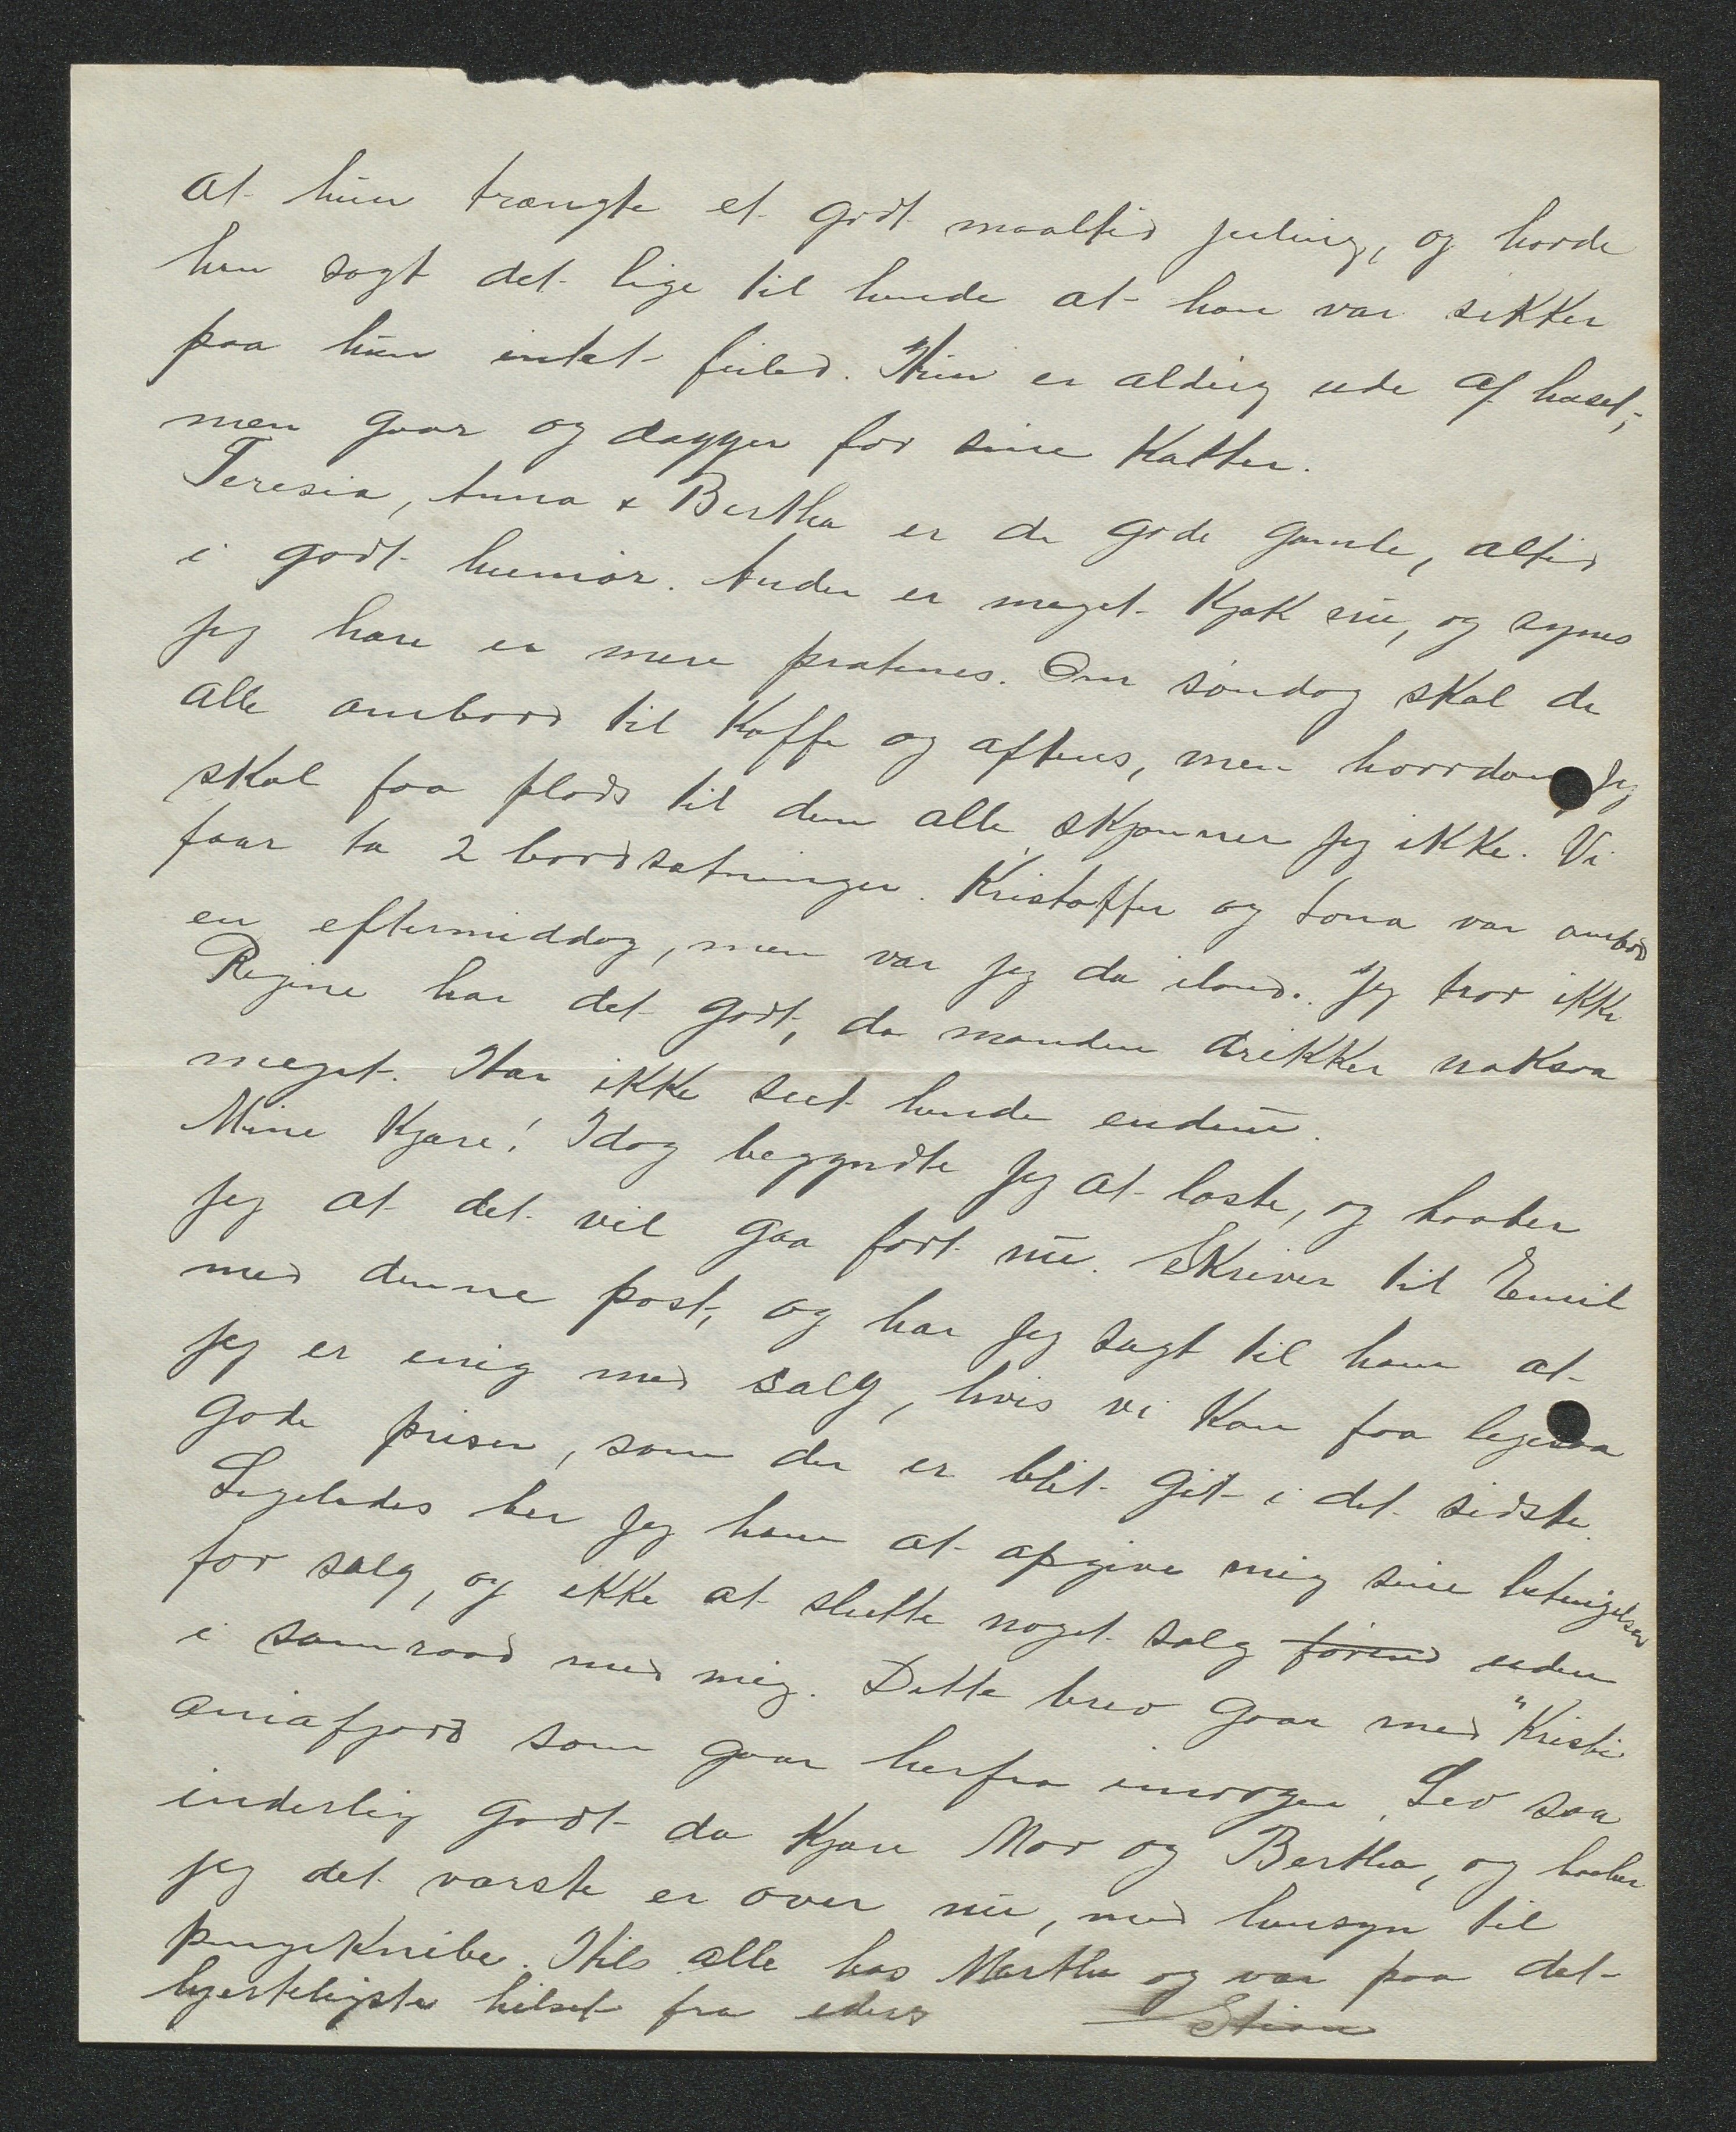 at hun trængte et godt maaltid juling, og havde
han sagt det lige til hende at han var sikker
paa hun intet feiled. Hun er aldrig ude af huset,
men gaar og dægger for sine Katter.
Teresia, Anna & Bertha er de gode gamle, altid
i godt humör. Ander er meget Kjæk nu, og synes
jeg han er mere pratenes. Om söndag skal de
alle ombord til Kaffe og aftens, men hvordan jeg
skal faa plads til dem alle skjönner jeg ikke. Vi
faar ta 2 bordsætninger. Kristoffer og Lona var ombord
en eftermiddag, men var jeg da iland. Jeg tror ikke
Regine har det godt, da manden drikker noksaa
meget. Har ikke seet hende endnu.
Mine Kjære! Idag begyndte jeg at laste, og haaber
jeg at det vil gaa fort nu. Skriver til Emil
med denne post, og har jeg sagt til ham at
jeg er enig med salg, hvis vi Kan faa ligesaa
gode priser, som der er blit git i det sidste.
Ligeledes ber jeg ham at opgive mig sine betingelser
for salg, og ikke at slutte noget salg förend uden
i samraad med mig. Dette brev gaar med "Kristi
aniafjord som gaar herfra imorgen. Lev saa
inderlig godt da Kjære Mor og Bertha, og haaber
jeg det værste er over nu, med hensyn til
pengeknibe. Hils alle hos Martha og vær paa det
hjerteligste hilset fra eders Stian